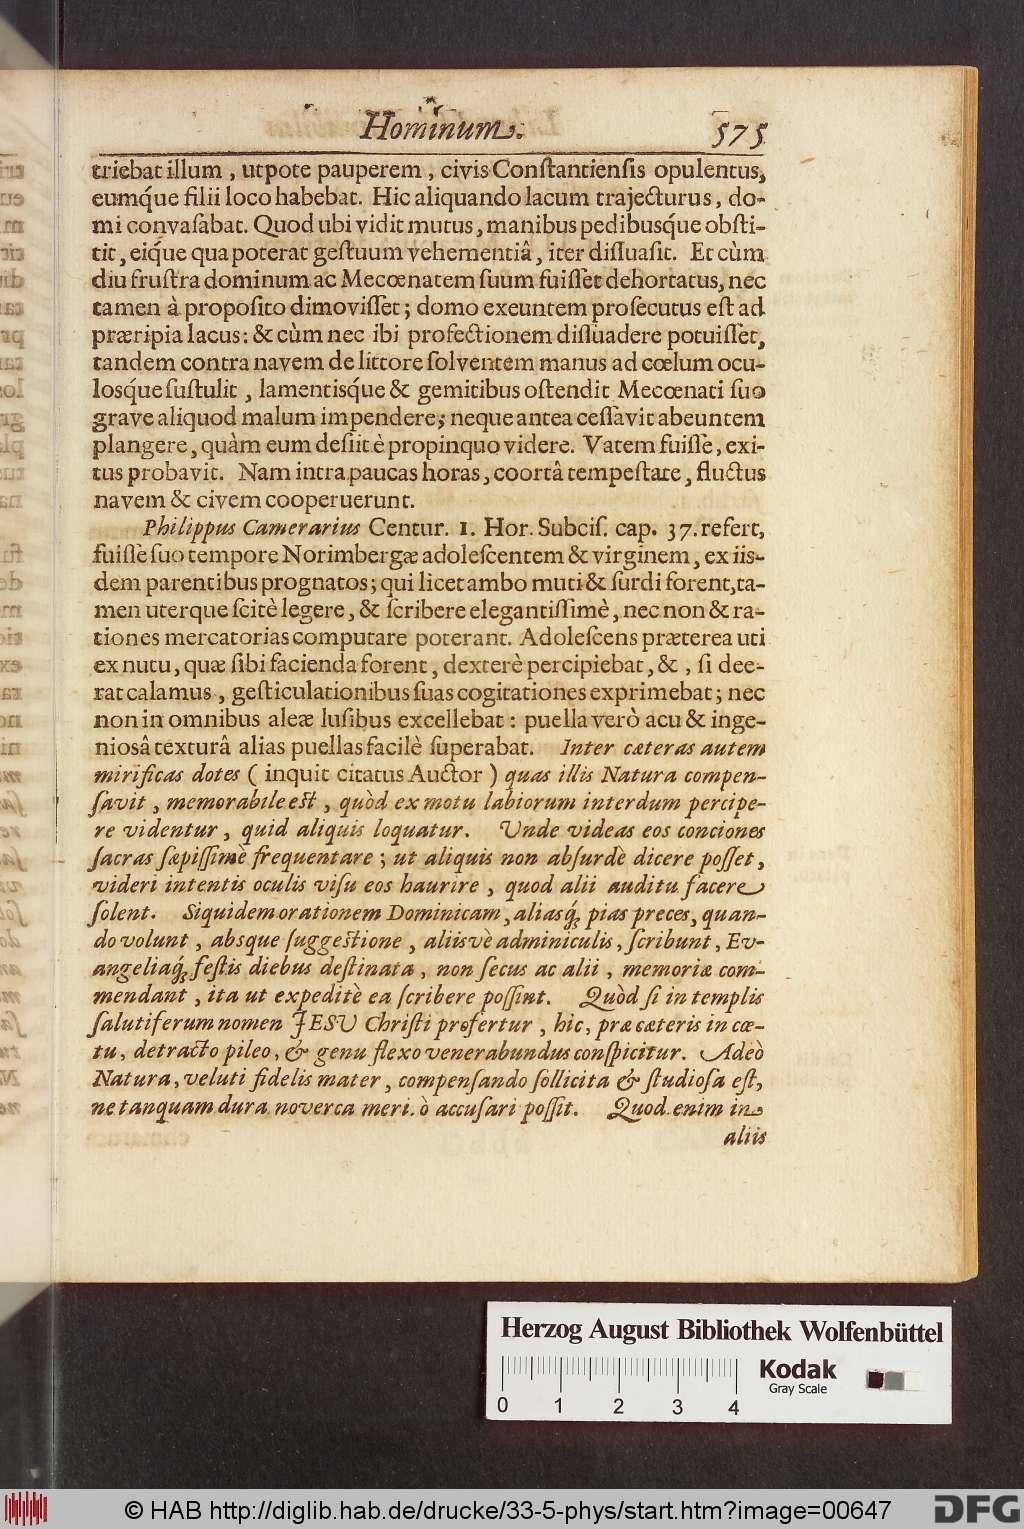 Hominum. 575
triebat illum, utpote pauperem, civis Constantiensis opulentus,
eumq́ue filii loco habebat. Hic aliquando lacum trajecturus, do-
mi convasabat. Quod ubi vidit mutus, manibus pedibusq́ue obsti-
tit, eiq́ue qua poterat gestuum vehementiâ, iter dissuasit. Et cùm
diu frustra dominum ac Mecœnatem suum fuisset dehortatus, nec
tamen à proposito dimovisset; domo exeuntem prosecutus est ad
præripia lacus: & cùm nec ibi profectionem dissuadere potuisset,
tandem contra navem de littore solventem manus ad cœlum ocu-
losq́ue sustulit, lamentisq́ue & gemitibus ostendit Mecœnati suo
grave aliquod malum impendere; neque antea cessavit abeuntem
plangere, quàm eum desiit è propinquo videre. Vatem fuisse, exi-
tus probavit. Nam intra paucas horas, coortâ tempestate, fluctus
navem & civem cooperuerunt.
Philippus Camerarius Centur. 1. Hor. Subcis. cap. 37. refert,
fuisse suo tempore Norimbergæ adolescentem & virginem, ex iis-
dem parentibus prognatos; qui licet ambo muti & surdi forent, ta-
men uterque scitè legere, & scribere elegantissimè, nec non & ra-
tiones mercatorias computare poterant. Adolescens præterea uti
ex nutu, quæ sibi facienda forent, dexterè percipiebat, &, si dee-
rat calamus, gesticulationibus suas cogitationes exprimebat; nec
non in omnibus aleæ lusibus excellebat: puella verò acu & inge-
niosâ texturâ alias puellas facilè superabat. Inter cæteras autem
mirificas dotes (inquit citatus Auctor) quas illis Natura compen-
savit, memorabile est, quòd ex motu labiorum interdum percipe-
re videntur, quid aliquis loquatur. Unde videas eos conciones
sacras sæpissimè frequentare; ut aliquis non absurdè dicere posset,
videri intentis oculis visu eos haurire, quod alii auditu facere
solent. Siquidem orationem Dominicam, aliasq́; pias preces, quan-
do volunt, absque suggestione, aliisvè adminiculis, scribunt, Ev-
angeliaq́; festis diebus destinata, non secus ac alii, memoriæ com-
mendant, ita ut expeditè ea scribere possint. Quòd si in templis
salutiferum nomen JESU Christi profertur, hic, præ cæteris in cœ-
tu, detracto pileo, & genu flexo venerabundus conspicitur. Adeò
Natura, veluti fidelis mater, compensando sollicita & studiosa est,
ne tanquam dura noverca meri.ò accusari possit. Quod enim in
aliis
Herzog August Bibliothek Wolfenbüttel
Kodak
Gray Scale
0 1 2 3 4
© HAB http://diglib.hab.de/drucke/33-5-phys/start.htm?image=00647
DFG